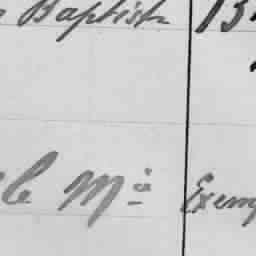 Baptista 13
le Mª Exem